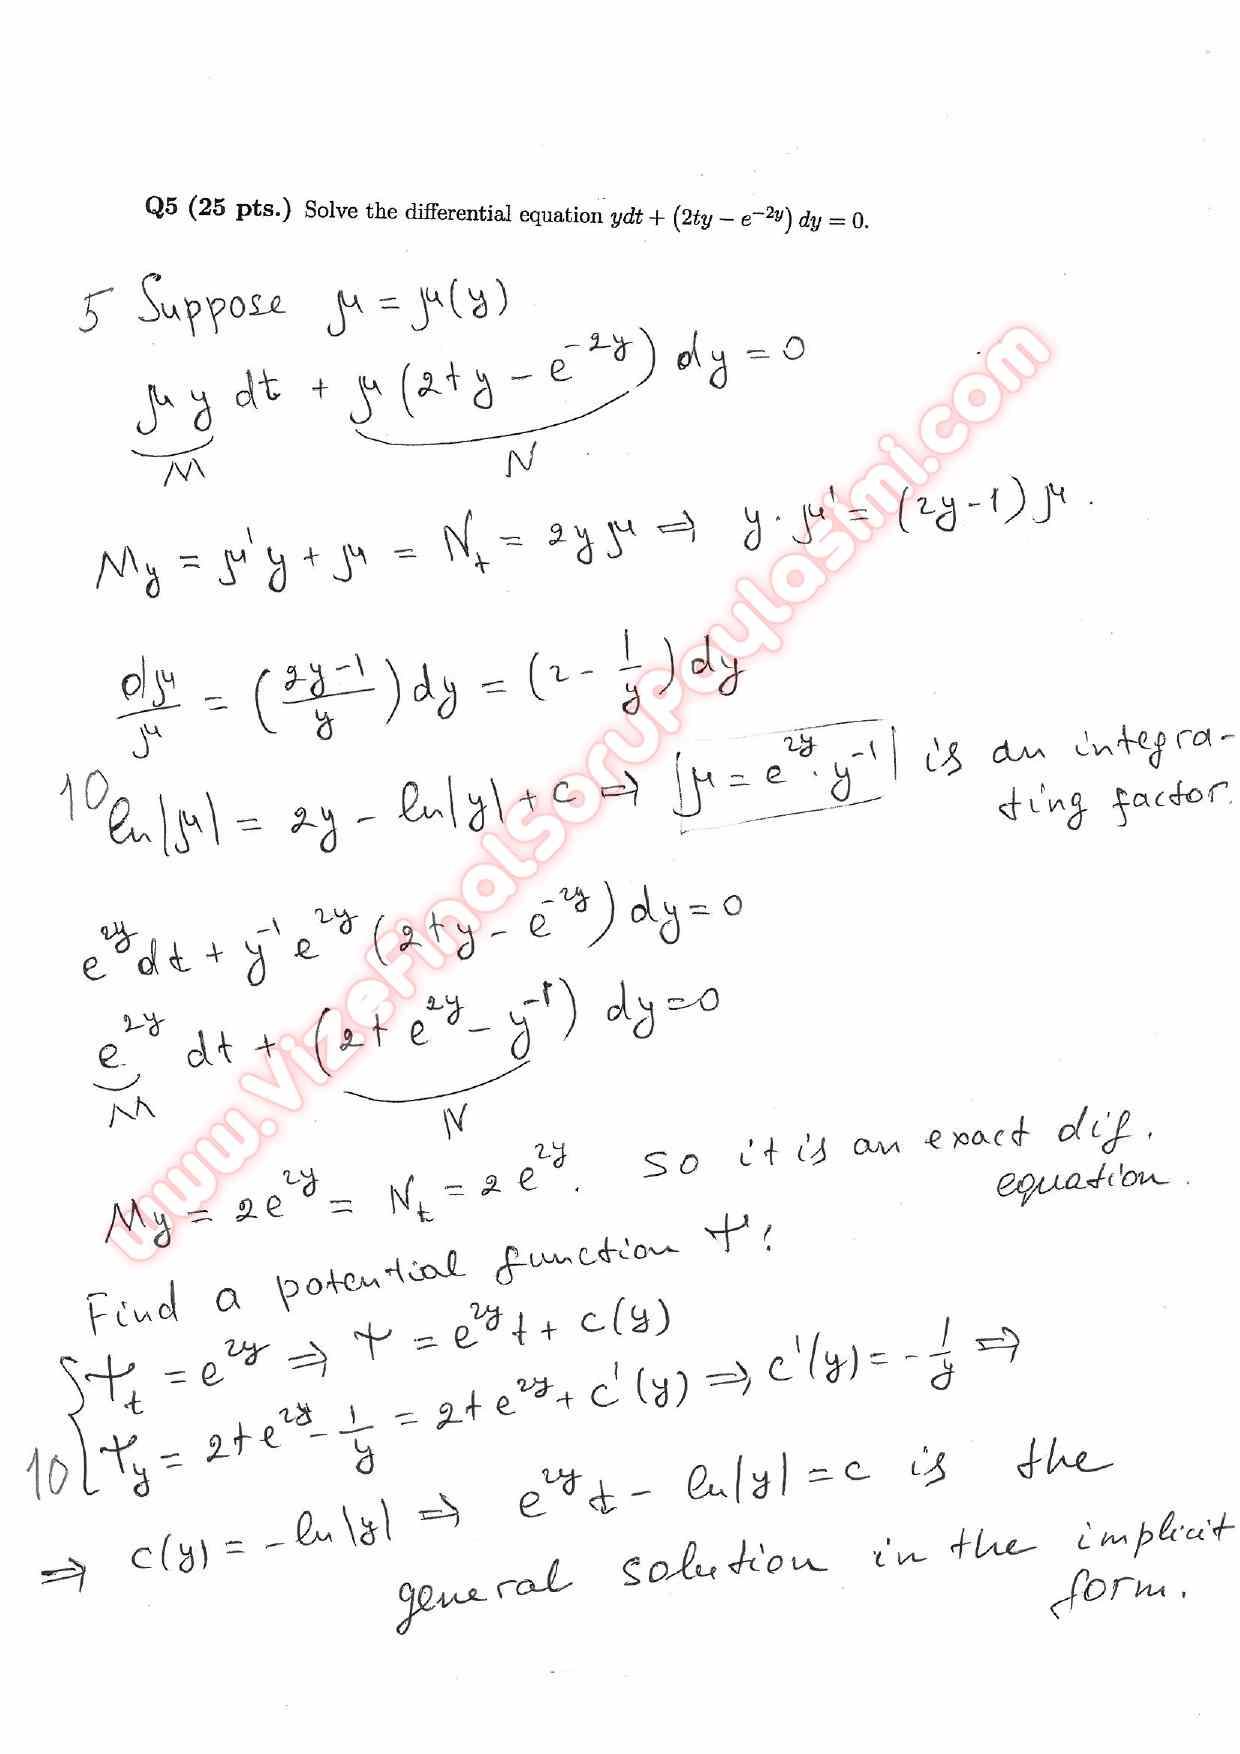 Q5 (25 pts.) Solve the differential equation ydt + (2ty − e^{−2y}) dy = 0.
5 Suppose μ = μ(y)
μ y dt + μ (2ty − e^{−2y}) dy = 0
M N
M_y = μ'y + μ = N_t = 2yμ ⇒ y · μ' = (2y−1) μ.
dμ/μ = ((2y−1)/y) dy = (2 − 1/y) dy
10 ln|μ| = 2y − ln|y| + c ⇒ μ = e^{2y} · y^{−1} is an integra-
ting factor.
e^{2y} dt + y^{−1} e^{2y} (2ty − e^{−2y}) dy = 0
e^{2y} dt + (2t e^{2y} − y^{−1}) dy = 0
M N
M_y = 2e^{2y} = N_t = 2e^{2y}. So it is an exact dif.
equation.
Find a potential function Ψ:
Ψ_t = e^{2y} ⇒ Ψ = e^{2y} t + c(y)
10 Ψ_y = 2te^{2y} − 1/y = 2te^{2y} + c'(y) ⇒ c'(y) = −1/y ⇒
⇒ c(y) = −ln|y| ⇒ e^{2y} t − ln|y| = c is the
general solution in the implicit
form.
www.VizeFinalSoruPaylasimi.com